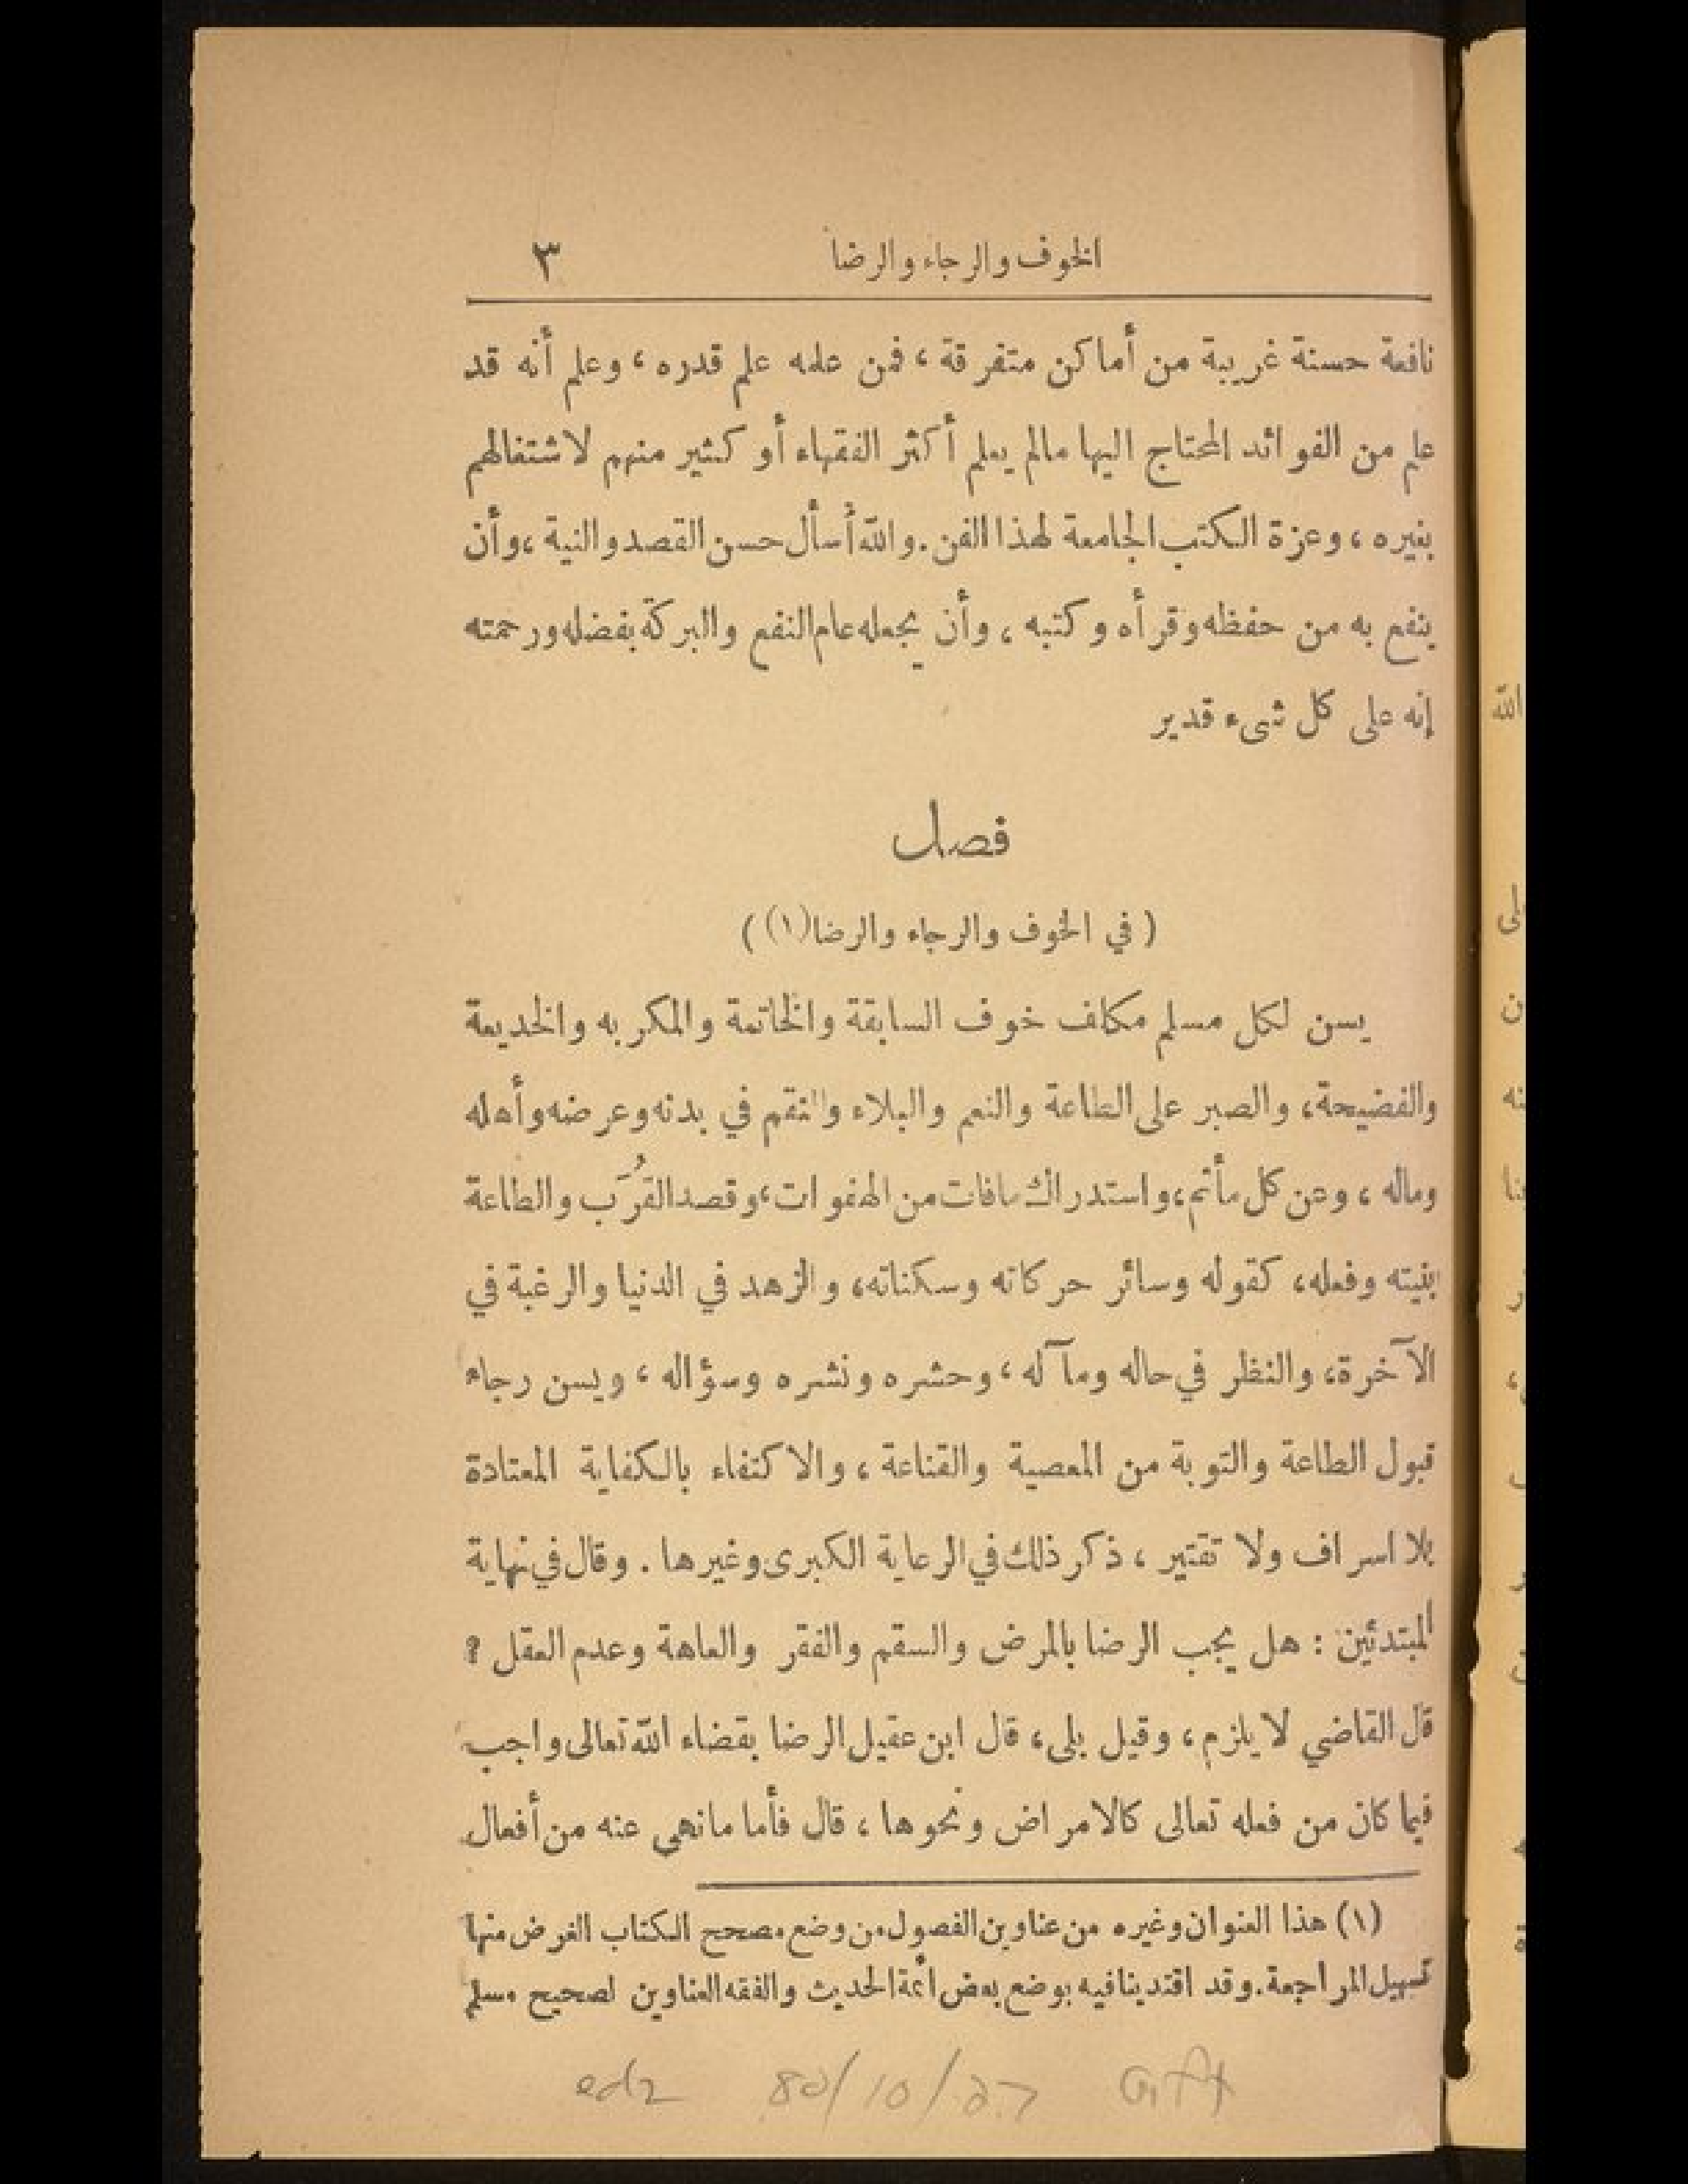 الخوف والرجاء والرضا ٣
نافعة حسنة غريبة من أماكن متفرقة ، فمن علمه علم قدره ، وعلم أنه قد
علم من الفوائد المحتاج اليها مالم يعلم أكثر الفقهاء أو كثير منهم لاشتغالهم
بغيره ، وعزة الكتب الجامعة لهذا الفن . والله أسأل حسن القصد والنية ، وأن
ينفع به من حفظه وقرأه وكتبه ، وأن يجعله عام النفع والبركة بفضله ورحمته
إنه على كل شيء قدير
فصل
( في الخوف والرجاء والرضا(١) )
يسن لكل مسلم مكلف خوف السابقة والخاتمة والمكر به والخديعة
والفضيحة، والصبر على الطاعة والنعم والبلاء والنقم في بدنه وعرضه وأهله
وماله ، وعن كل مأثم ، واستدراك مافات من الهفوات ، وقصد القُرَب والطاعة
بنيته وفعله، كقوله وسائر حركاته وسكناته، والزهد في الدنيا والرغبة في
الآخرة، والنظر في حاله ومآله ، وحشره ونشره وسؤاله ، ويسن رجاء
قبول الطاعة والتوبة من المعصية والقناعة ، والاكتفاء بالكفاية المعتادة
بلا اسراف ولا تقتير ، ذكر ذلك في الرعاية الكبرى وغيرها . وقال في نهاية
المبتدئين : هل يجب الرضا بالمرض والسقم والفقر والعاهة وعدم العقل ؟
قال القاضي لا يلزم ، وقيل بلى ، قال ابن عقيل الرضا بقضاء الله تعالى واجب
فيما كان من فعله تعالى كالامراض ونحوها ، قال فأما ما نهى عنه من أفعال
(١) هذا العنوان وغيره من عناوين الفصول من وضع مصحح الكتاب الغرض منها
تسهيل المراجعة . وقد اقتدينا فيه بوضع بعض أئمة الحديث والفقه العناوين لصحيح مسلم
Gift